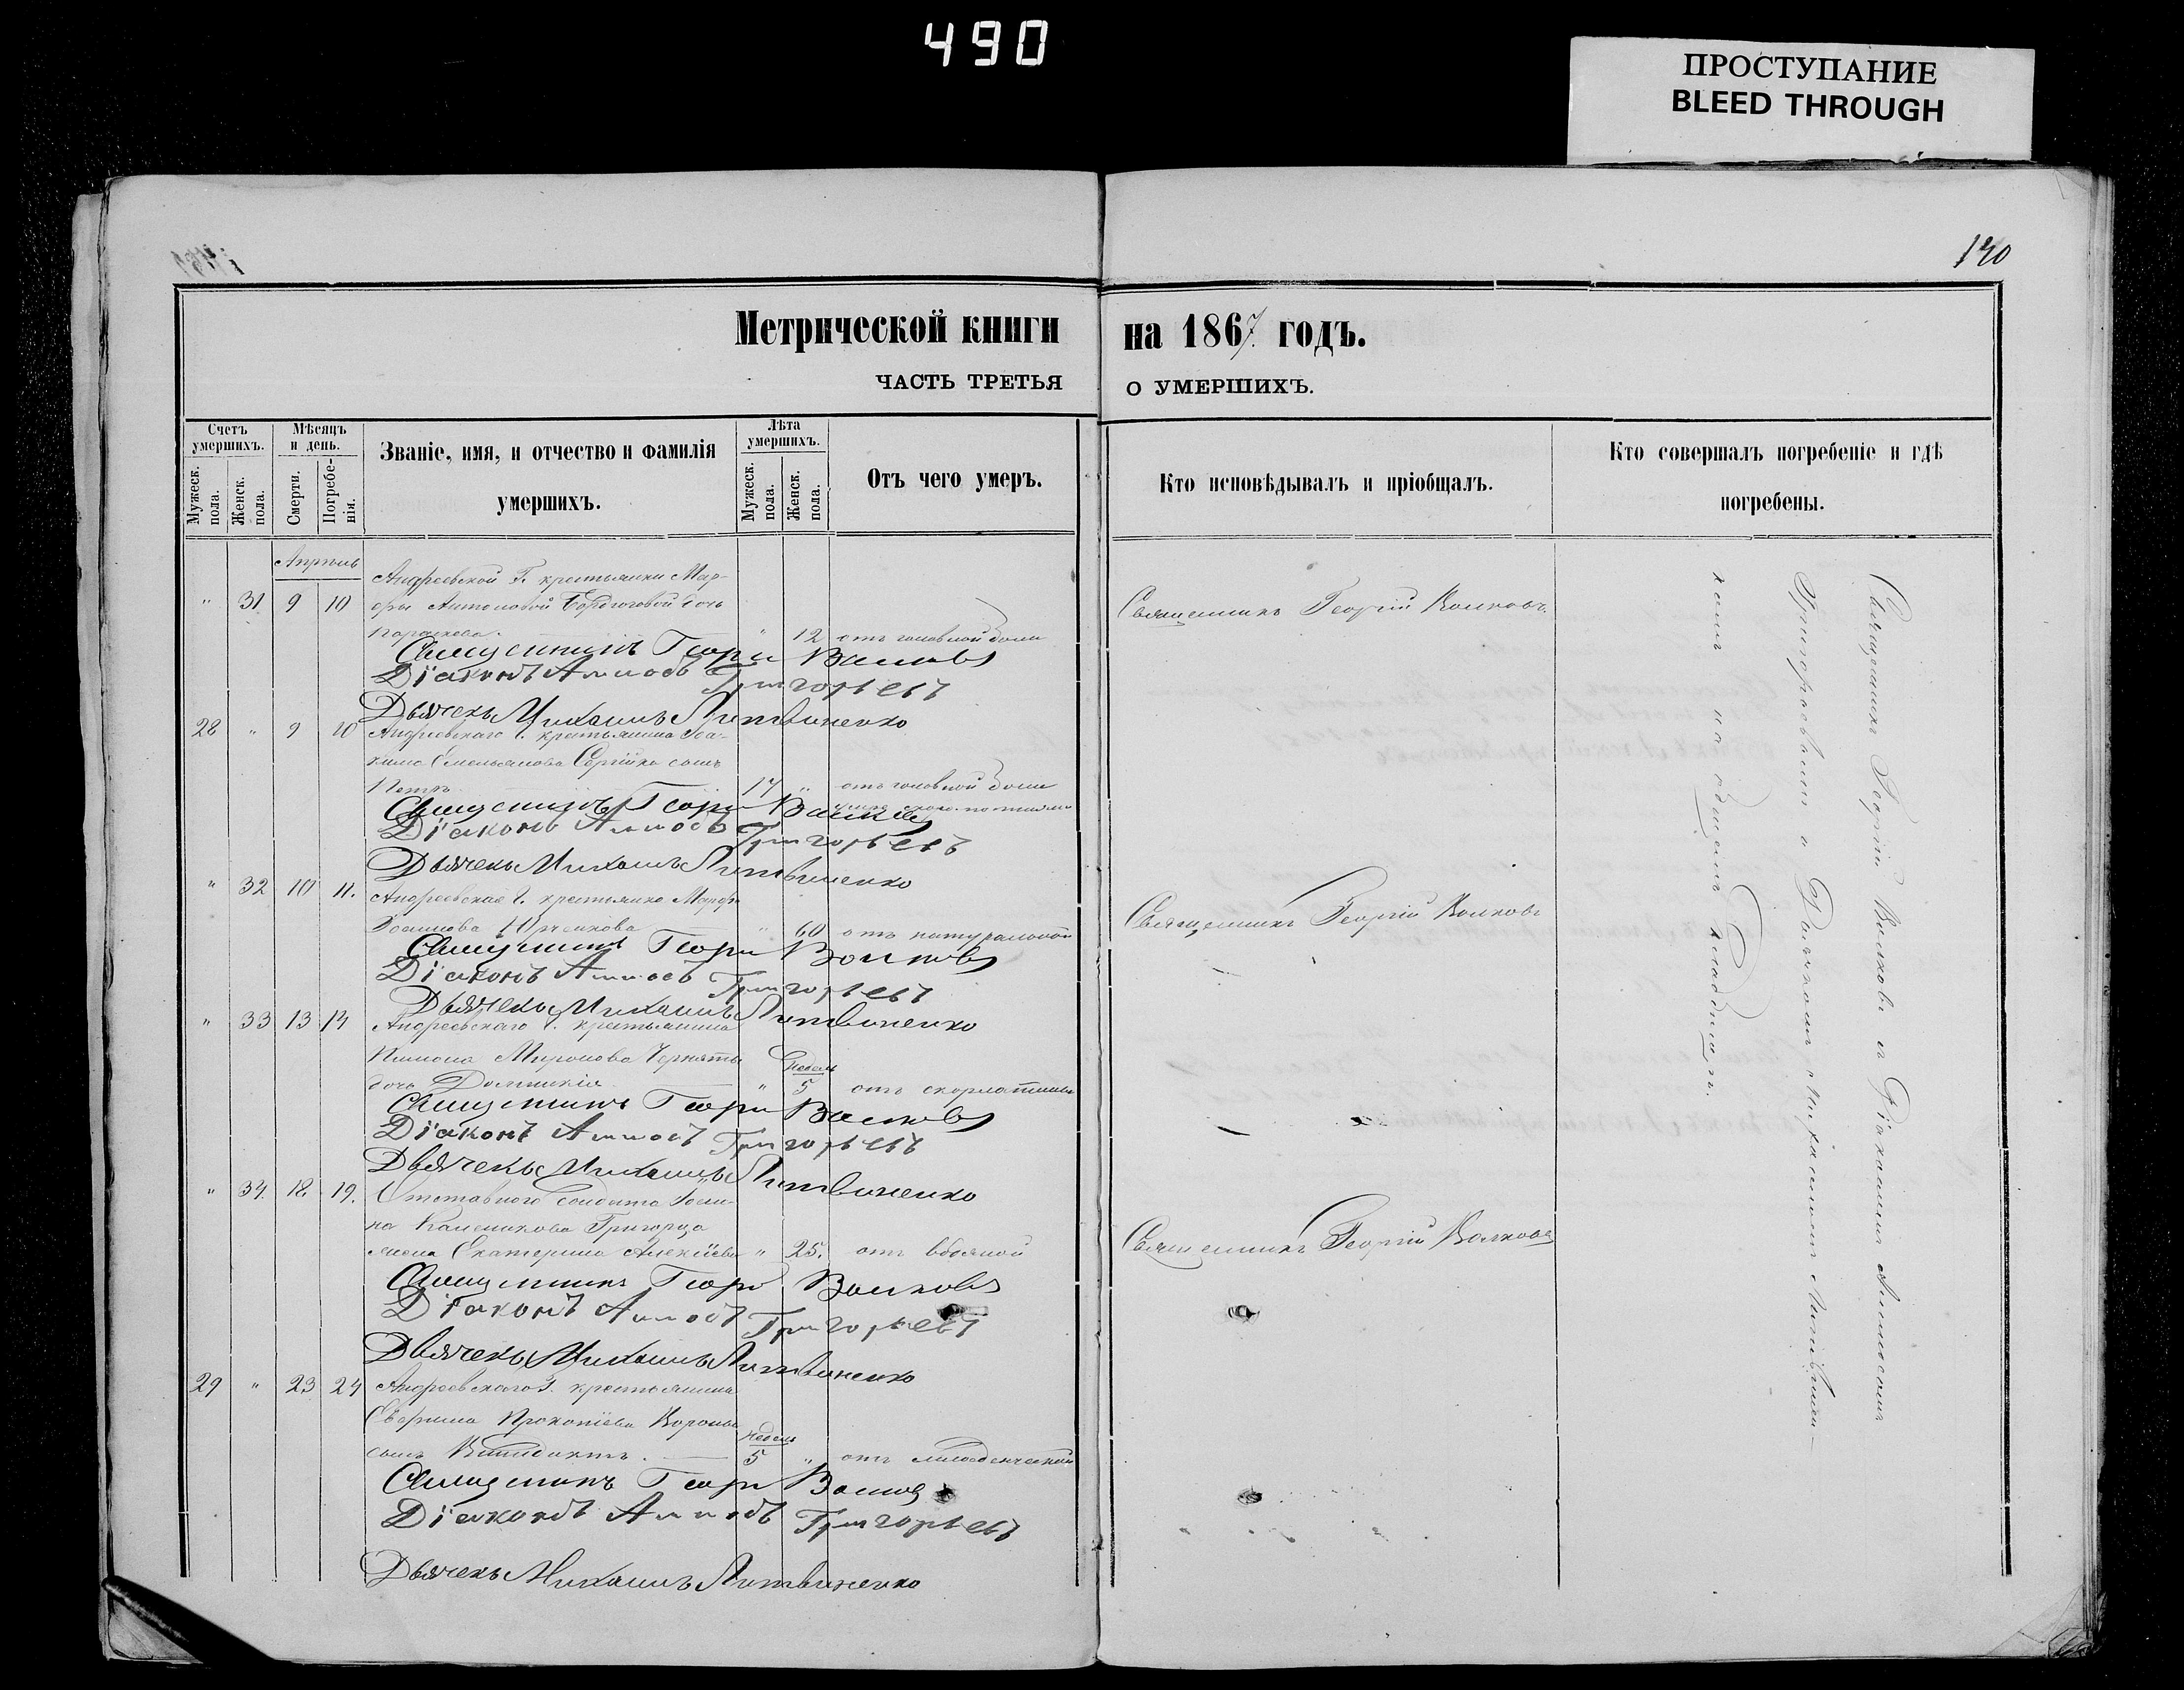 490
ПРОСТУПАНИЕ
BLEED THROUGH
190
Метрической книги на 1867 годъ.
ЧАСТЬ ТРЕТЬЯ О УМЕРШИХЪ.
Счетъ умершихъ.
Мужеск. пола.
Женск. пола.
Мѣсяцъ и день.
Смерти.
Погребе-нія.
Званіе, имя, и отчество и фамилія
умершихъ.
Лѣта умершихъ.
Мужеск. пола.
Женск. пола.
Отъ чего умеръ.
Кто исповѣдывалъ и пріобщалъ.
Кто совершалъ погребеніе и гдѣ
погребены.
Апрѣль
Андреевской Г. крестьянки Мар-
" 31 9 10 Антоновой дочь Священникъ Георгій Волковъ
" 12 отъ головной боли
Священникъ Георгій Волковъ
Діаконъ Аммосъ Григорьевъ
Дьячекъ Михаилъ Литвиненко
28 " 9 10 Андреевскаго Г. крестьянина Іоа-
кима Емельянова сынъ
Петръ 17 " отъ головной боли
Священникъ Георгій Волковъ
Діаконъ Аммосъ Григорьевъ
Дьячекъ Михаилъ Литвиненко
" 32 10 11. Андреевская Г. крестьянка
Юрченкова " 60 отъ натуральной Священникъ Георгій Волковъ
Священникъ Георгій Волковъ
Діаконъ Аммосъ Григорьевъ
Дьячекъ Михаилъ Литвиненко
" 33 13 14 Андреевскаго Г. крестьянина
Миронова недель
дочь Домникія " 5 отъ скорлатины
Священникъ Георгій Волковъ
Діаконъ Аммосъ Григорьевъ
Дьячекъ Михаилъ Литвиненко
" 34. 18. 19. Отставного Солдата Іоан-
на Григорца
жена Екатерина Алексіева " 25. отъ водяной Священникъ Георгій Волковъ
Священникъ Георгій Волковъ
Діаконъ Аммосъ Григорьевъ
Дьячекъ Михаилъ Литвиненко
29 " 23 24 Андреевскаго Г. крестьянина
Прокопіева недель
сынъ 5 " отъ младенческой
Священникъ Георгій Волковъ
Діаконъ Аммосъ Григорьевъ
Дьячекъ Михаилъ Литвиненко
Священникъ Георгій Волковъ съ Діакономъ Аммосомъ
Григорьевымъ и Дьячкомъ Михаиломъ Литвинен-
комъ на общемъ кладбищѣ.